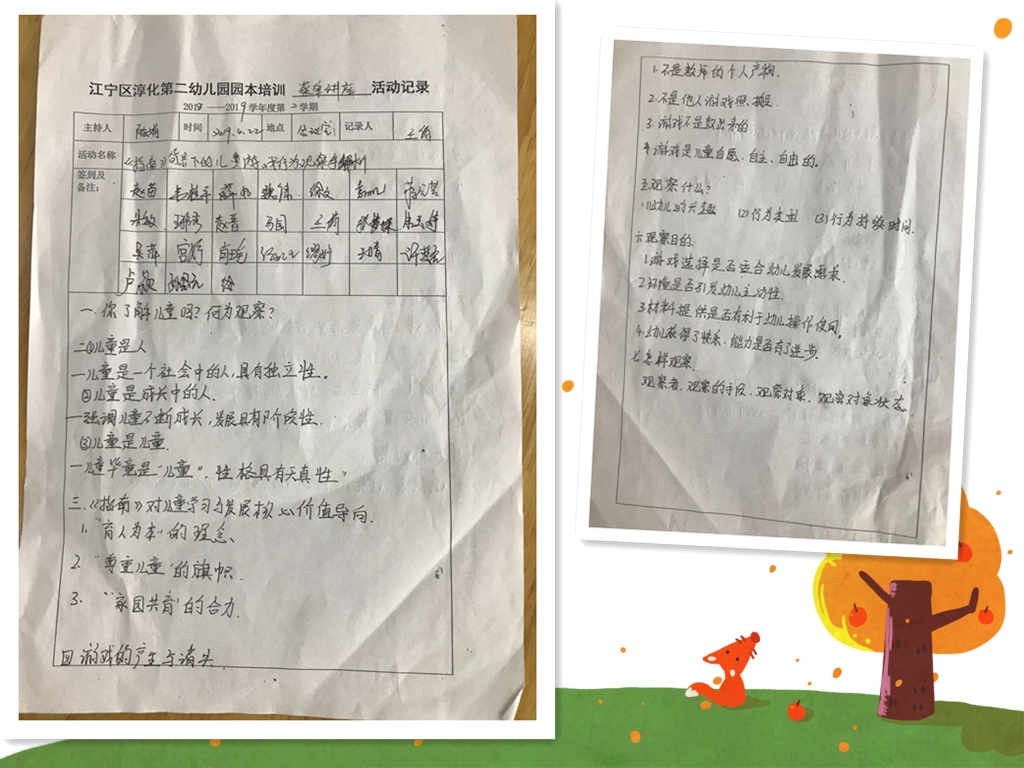 江宁区淳化第二幼儿园园本培训 菜单讲座 活动记录
2018——2019学年度第二学期
主持人 时间 2019.4.22 地点 会议室 记录人 王茜
活动名称 《指南》背景下的儿童游戏行为观察与解析
签到及
备注:
赵苗
赵蓉 马园 王茜
吴萍 宫舒
卢颖
一.你了解儿童吗?何为观察?
二①儿童是人
一儿童是一个社会中的人,具有独立性。
②儿童是成长中的人.
一强调儿童不断成长,发展具有个性.
③儿童是儿童.
一儿童毕竟是“儿童”,性格具有天真性”
三.《指南》对儿童学习与发展核心价值导向.
1.“育人为本”的理念、
2.“尊重儿童”的旗帜.
3.“家园共育”的合力.
四 游戏的产生与
1.不是教师的个人产物.
2.不是他人游戏照搬.
3.游戏不是教出来的
4.游戏是儿童自愿、自主、自由的。
五.观察什么?
(1)幼儿的兴趣 (2)行为类型 (3)行为持续时间.
六.观察目的:
1.游戏选择是否适合幼儿发展需求.
2.环境是否引发幼儿主动性.
3.材料提供是否有利于幼儿操作使用。
4.幼儿获得了快乐,能力是否有了进步.
七.怎样观察.
观察者,观察的手段,观察对象,观察对象状态.